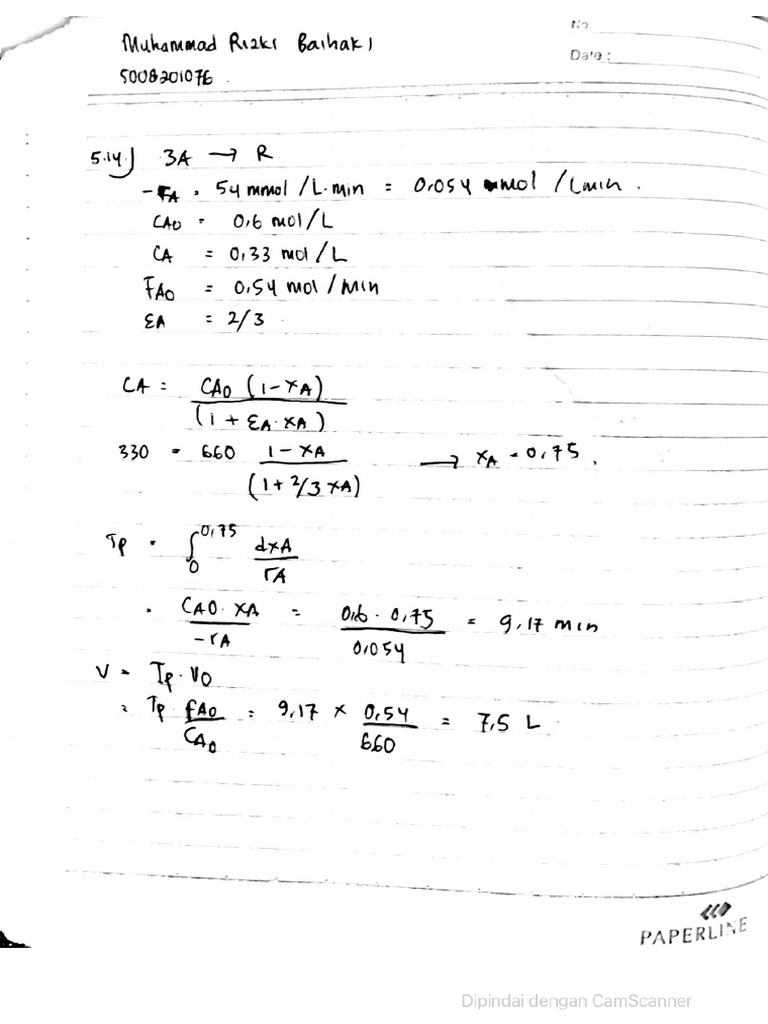 No.
Muhammad Rizki Baihaki
Date :
5008201076
5.14.) 3A → R
-rA = 54 mmol / L.min = 0,054 mol / L min .
CA0 = 0,6 mol/L
CA = 0,33 mol/L
FA0 = 0,54 mol/min
εA = 2/3
CA = CA0 (1-XA) / (1 + εA.XA)
330 = 660 1-XA / (1 + 2/3 XA) → XA = 0,75 .
Tp = ∫0^0,75 dxA / rA
= CA0. XA / -rA = 0,6 . 0,75 / 0,054 = 9,17 min
V = Tp. V0
= Tp FA0 / CA0 = 9,17 × 0,54 / 660 = 7,5 L
PAPERLINE
Dipindai dengan CamScanner